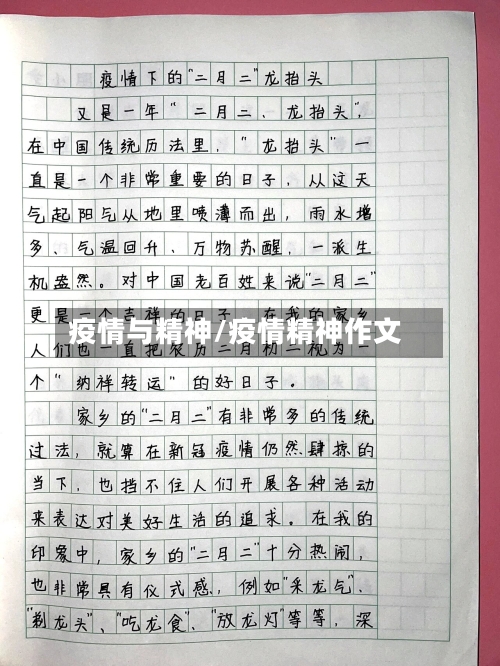 疫情下的"二月二"龙抬头
又是一年"二月二、龙抬头",
在中国传统历法里,"龙抬头"一
直是一个非常重要的日子,从这天
气起阳气从地里喷薄而出,雨水增
多、气温回升、万物苏醒,一派生
机盎然。对中国老百姓来说"二月二"
更是一个吉祥的日子。在我的家乡
疫情与精神/疫情精神作文
人们也一直把农历二月初二视为一
个"纳祥转运"的好日子。
家乡的"二月二"有非常多的传统
过法,就算在新冠疫情仍然肆掠的
当下,也挡不住人们开展各种活动
来表达对美好生活的追求。在我的
印象中,家乡的"二月二"十分热闹,
也非常具有仪式感,例如"采龙气"、
"剃龙头"、"吃龙食"、"放龙灯"等等,深